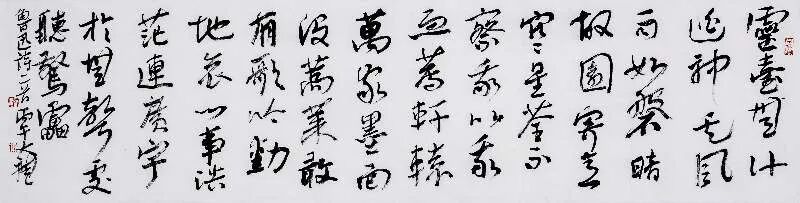 靈臺無計
逃神矢風
雨如磐暗
故園寄意
寒星荃不
察我以我
血薦軒轅
萬家墨面
沒蒿萊敢
有歌吟動
地哀心事浩
茫連廣宇
於無聲處
聽驚雷
魯迅詩二首